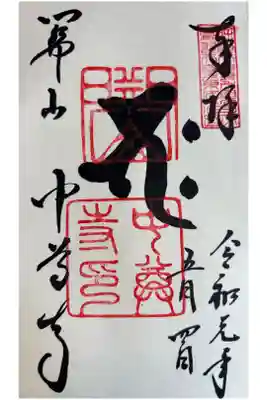 奉拝
令和元年
五月四日
関山 中尊寺
中尊寺印